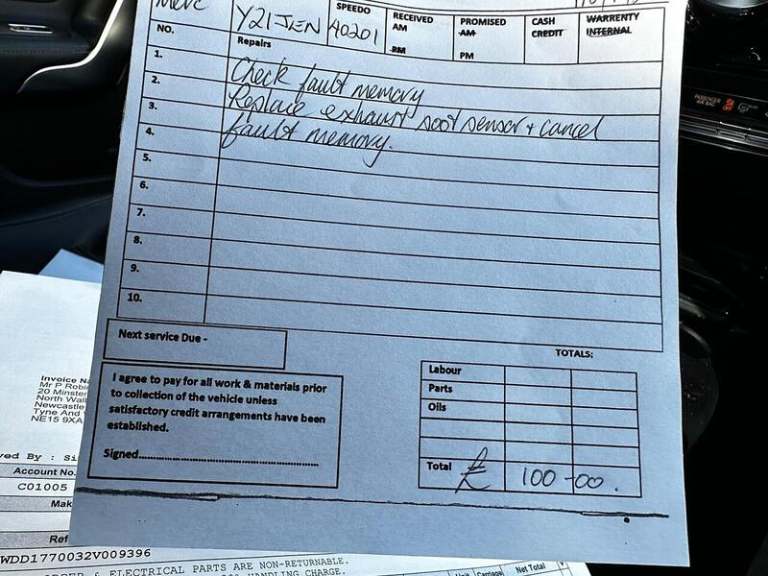 Merc Y21 JEN SPEEDO 40201 RECEIVED AM PM PROMISED AM PM CASH CREDIT WARRANTY INTERNAL
NO. Repairs
1. Check fault memory
2. Replace exhaust soot sensor + cancel
3. fault memory.
4.
5.
6.
7.
8.
9.
10.
Next service Due -
TOTALS:
I agree to pay for all work & materials prior
to collection of the vehicle unless
satisfactory credit arrangements have been
established.
Signed
Labour
Parts
Oils
Total £ 100-00.
Invoice
Mr P
20
North
Newcastle
Tyne And
NE15 9XA
By :
Account No.
C01005
WDD1770032V009396
& ELECTRICAL PARTS ARE NON-RETURNABLE.
HANDLING CHARGE.
Net Total